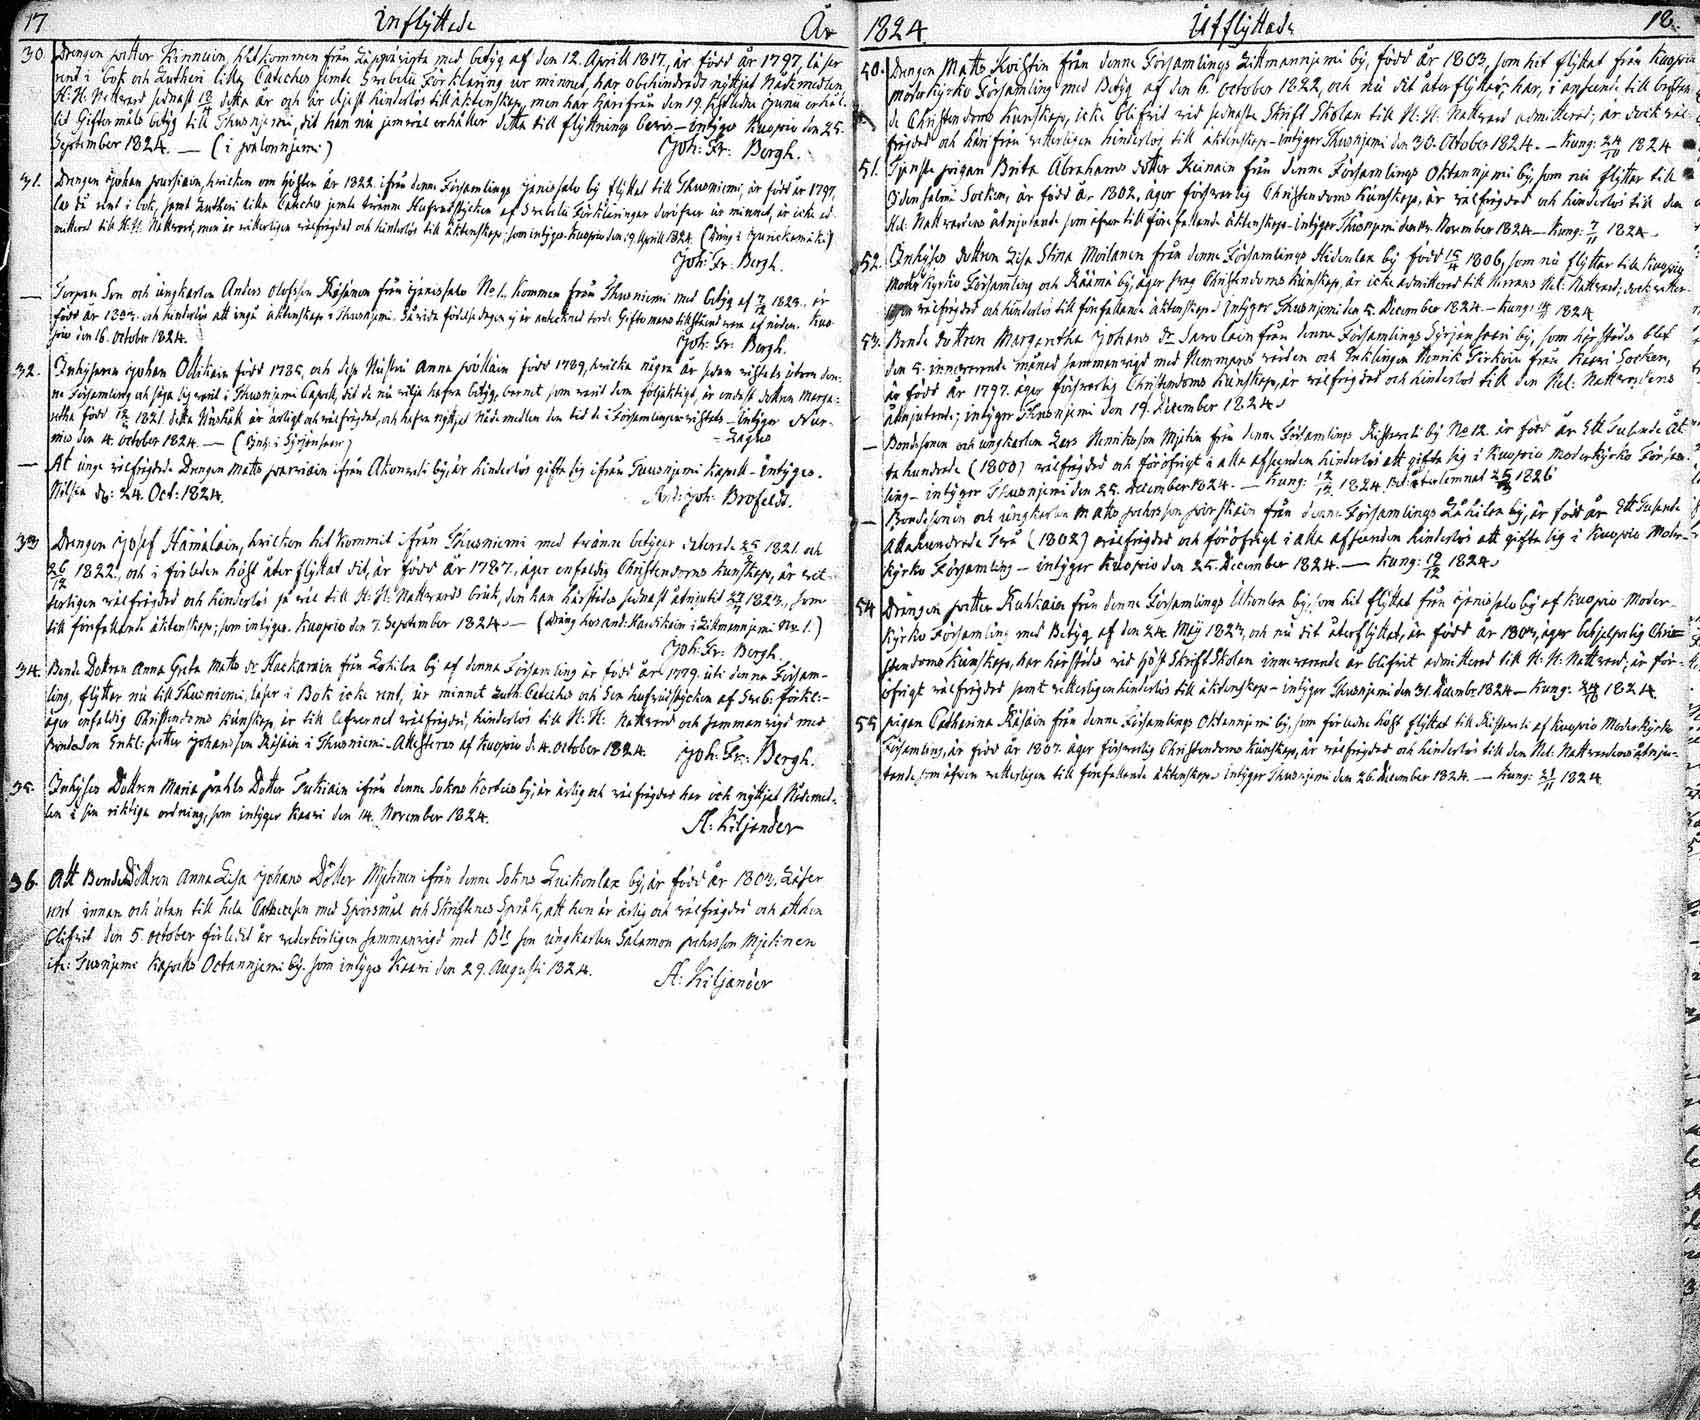 17 Inflyttade År
30. Drengen petter Kinnuin hitkommen från Läppävirta med betyg af den 12. Aprill 1817, är född år 1797, läser
rent i bok och Lutheri lilla Cateches jemte Svebelii Förklaring ur minnet, har obehindradt nyttjat Nådemedlen
H: H: Nattvard sednast detta år och är eljest hinderlös till äktenskap, men har härifrån den 19. sistledne Junii erhål-
lit Giftermåls betyg till Thusnjemi, dit han nu jemväl erhåller detta till flyttnings bevis – intygas Kuopio den 25.
September 1824. — (i palonnjemi) Joh: Fr: Bergh.
31. Drengen Johan pursiain, hvilken om hösten år 1822. ifrån denne Församlings Jänissalo by flyttat till Thusniemi, är född år 1797,
läs då rent i bok, samt Lutheri lilla Cateches jemte tvänne Hufvudstycken af Svebelii Förklaringar deröfver ur minnet, är icke ad-
mitterad till H: H: Nattvard, men är vitterligen välfrägdad och hinderlös till äktenskap; som intygas. Kuopio den 9. Aprill 1824. (dräng i Junickamäki)
Joh: Fr: Bergh.
— Torpare Son och ungkarlen Anders Olofsson Räsänen från Jänissalo No 1. kommen från Thusniemi med betyg af 1823. är
född år och hinderlös att ingå äktenskap i Thusnjemi. Så vida födelsedagen ej är antecknad torde Giftomans tillstånd vara af nöden. Kuo-
pio den 16. October 1824. Joh: Fr: Bergh.
32. Inhysaren Johan Ollikain född 1785, och dess Hustru Anna född 1789, hvilka några år sedan vistats utom den-
ne Församling och säga sig varit i Thusnjemi Capell, dit de nu vilja hafva betyg, barnet som varit dem följaktigt, är endast dottren Marga-
retha född 1821. detta Hushåll är ärligt och välfrägdat, och hafva nyttjat Nådemedlen den tid de i Församlingen vistats – Intygar Nur-
mis den 4. October 1824. — (Inh: i Syrjensaari) Zagreus
— At unge välfrägdade Drengen Matts parviain ifrån Akonvesi by, är hinderlös gifta sig ifrån Tuusnjemi Kapell – intygas.
Nilsiä d: 24. Oct: 1824. And: Joh: Brofeldt.
33 Drengen Josef Hämäläin, hvilken hit kommit ifrån Thusniemi med tvänne betyger daterade 1821. och
1822., och i förleden höst åter flyttat dit, är född år 1787., äger enfaldig Christendoms kunskap, är vit-
terligen välfrägdad och hinderlös så väl till H: H: Nattvards bruk, den han härstädes sednast åtnjutit 1823., som
till förefallande äktenskap; som intygas. Kuopio den 7. September 1824. — (dräng hos And: Kardikain i Littmannjemi No 1.)
Joh: Fr: Bergh.
34. Bonde Dottren Anna Greta Matts Dr Hackarain från Lohilax by af denna Församling är född år 1779. uti denna Försam-
ling, flyttar nu till Thusniemi, läser i Bok icke rent, ur minnet Luth: Cateches och Sex hufvudstycken af Sveb: förkl:
äger enfaldig Christendoms kunskap, är till lefvernet välfrägdad, hinderlös till H: H: Nattvard och sammanvigd med
Bonde Son Enkl: petter Johansson Räsäin i Thusniemi. Attesteras af Kuopio d: 4. October 1824. Joh: Fr: Bergh.
35. Inhyses Dottren Maria påhls Dotter Tuckiain ifrån denne Sokns Kortteis by, är ärlig och välfrägdad har ock nyttjat Nådemed-
len i sin riktiga ordning, som intygar Kaavi den 14. November 1824.
A: Kiljander
36. Att Bondedottren Anna Lisa Johans Dotter Mjetinen ifrån denne Sokns Luikonlax by, är född år 1803, Läser
rent innan och utan till hela Cathecesen med Spörsmål och Skriftenes Språk, att hon är ärlig och välfrägdad och att hon
blifvit den 5. October förledit år vederbörligen sammanvigd med Bde son ungkarlen Salamon pehrsson Mjetinen
ifr: Tusnjemi Kapells Octannjemi by. som intygas Kaavi den 29. Augusti 1824.
A: Kiljander
1824. Utflyttade 18.
50. Drengen Matts Kvistin från denne Församlings Littmannjemi by, född år 1803, som hit flyttat från Kuopio
Moderkyrko Församling med Betyg af den 6. October 1822, och nu dit återflyttar, har, i anseende till bristan-
de Christendoms kunskap, icke blifvit vid sednaste Skrift Skolan till H: H: Nattvard admitterad; är dock väl-
frägdad och härifrån vetterligen hinderlös till äktenskap – intygar Thusnjemi den 30. October 1824. – Kung: 24/10 1824
51. Tjenste pigan Brita Abrahams dotter Keinain från denne Församlings Oktannjemi by, som nu flyttar till
Idensalmi Socken, är född år 1802, äger försvarlig Christendoms kunskap, är välfrägdad och hinderlös till den
Hel: Nattvardens åtnjutande som äfven till förefallande äktenskap – intygar Thusnjemi den 14. November 1824 – Kung: 7/11 1824.
52. Inhyses dottren Lisa Stina Moilanen från denne Församlings Hidenlax by född 1806, som nu flyttar till Kuopio
Moder Kyrko Församling och Räämä by, äger svag Christendoms kunskap, är icke admitterad till Herrans Hel: Nattvard; dock vetter-
ligen välfrägdad och hinderlös till förefallande äktenskap intygar Thusnjemi den 5. December 1824. – Kung: 1824
53. Bonde dottren Margaretha Johans Dr Savolain från denne Församlings Syrjensaari by, som härstädes blef
den 5. innevarande månad sammanvigd med Nemmans värden och Enklingen Henrik Tirkiäin från Kaavi Socken,
är född år 1797. äger försvarlig Christendoms kunskap, är välfrägdad och hinderlös till den Hel: Nattvardens
åtnjutande; intygar Thusnjemi den 19. December 1824.
— Bondesonen och ungkarlen Lars Henriksson Mjetin från denne Församlings Ristivesi by No 12. är född år Ett Tusende Åt-
ta hundrade (1800) välfrägdad och föröfrigt i alla afseenden hinderlös att gifta sig i Kuopio Moderkyrko Försam-
ling – intygar Thusnjemi den 25. December 1824. – Kung: 12/12 1824. 1826
— Bondesonen och ungkarlen Matts pehrsson från denne Församlings Lähilax by, är född år Ett Tusende
Åttahundrade Två (1802) välfrägdad och föröfrigt i alla afseenden hinderlös att gifta sig i Kuopio Moder-
kyrko Församling – intygar Kuopio den 25. December 1824. — Kung: 12/12 1824.
54 Drängen petter Ruhkain från denne Församlings Ukonlax by, som hit flyttat från Jänissalo by af Kuopio Moder-
kyrko Församling med Betyg af den 24. Maij 1823, och nu dit återflyttat, är född år 1803, äger behjelpelig Chri-
stendoms kunskap, har härstädes vid höst Skrift Skolan innevarande år blifvit admitterad till H: H: Nattvard; är för-
öfrigt välfrägdad samt vetterligen hinderlös till äktenskap – intygar Thusnjemi den 31. December 1824 – Kung: 1824.
55 pigan Catharina Räsäin från denne Församlings Oktannjemi by, som förledne höst flyttat till Ristivesi af Kuopio Moder Kyrko
Församling, är född år 1807. äger försvarlig Christendoms kunskap, är välfrägdad och hinderlös till den Hel: Nattvardens åtnju-
tande, som äfven vetterligen till förefallande äktenskap intygar Thusnjemi den 26. December 1824. – Kung: 21/11 1824